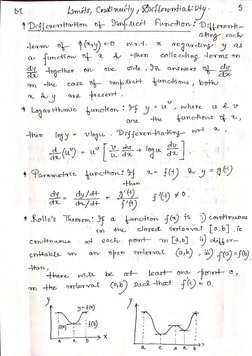 M Limits, Continuity, Differentiability. 5
Differentiation of Implicit Function: Differenti-
ating each
term of φ(x,y)=0 w.r.t. x regarding y as
a function of x & then collecting terms in
dy/dx together on one side. In answers of dy/dx
in the case of implicit functions, both
x & y are present.
Logarithmic function: If y = u^v, where u & v
are the functions of x,
then logy = vlogu. Differentiating wrt x,
d/dx(u^v) = u^v [v/u du/dx + logu dv/dx].
Parametric function: If x = f(t) & y = g(t)
then
dy/dx = dy/dt / dx/dt = g'(t)/f'(t) f'(t) ≠ 0.
Rolle's Theorem: If a function f(x) is i) continuous
in the closed interval [a,b], ie
continuous at each point in [a,b] ii) differ-
entiable in an open interval (a,b), iii) f(a)=f(b)
then,
there will be at least one point c,
in the interval (a,b) such that f'(c) = 0.
y y=f(x) y
f(a) f(b)
a c b x a c b x